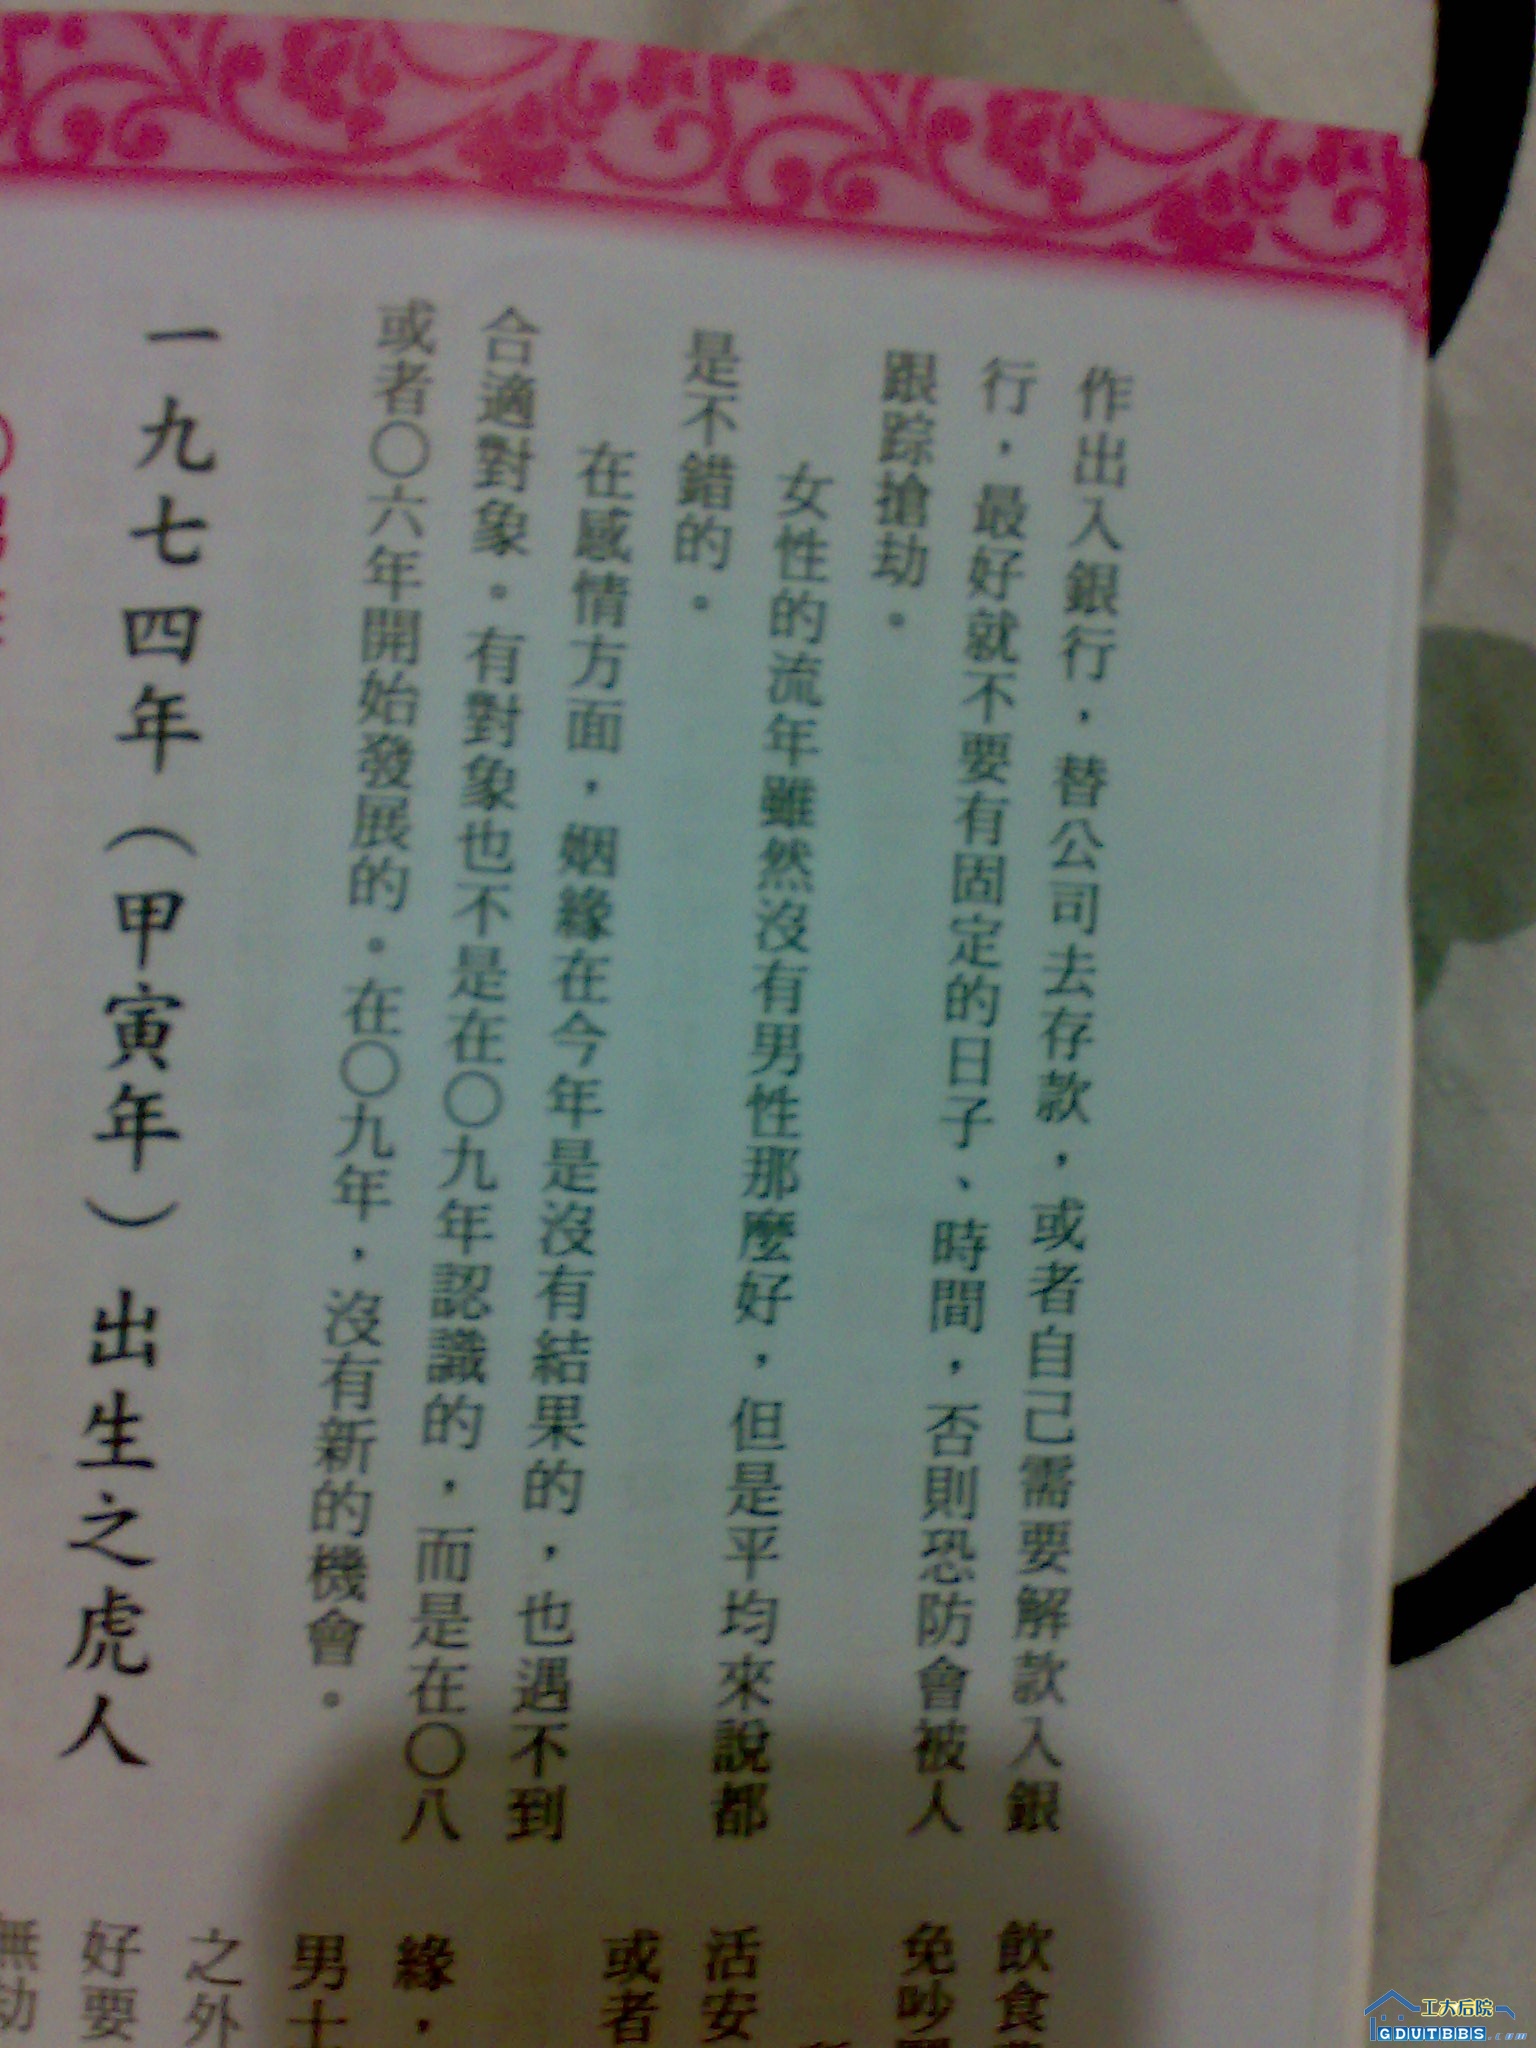 作出入銀行，替公司去存款，或者自己需要解款入銀
行，最好就不要有固定的日子、時間，否則恐防會被人
跟踪搶劫。
女性的流年雖然沒有男性那麼好，但是平均來說都
是不錯的。
在感情方面，姻緣在今年是沒有結果的，也遇不到
合適對象。有對象也不是在〇九年認識的，而是在〇八
或者〇六年開始發展的。在〇九年，沒有新的機會。
一九七四年（甲寅年）出生之虎人
飲食
免吵
活安
或者
緣，
男士
之外
好要
無劫
工大后院
GDUTBBS.com